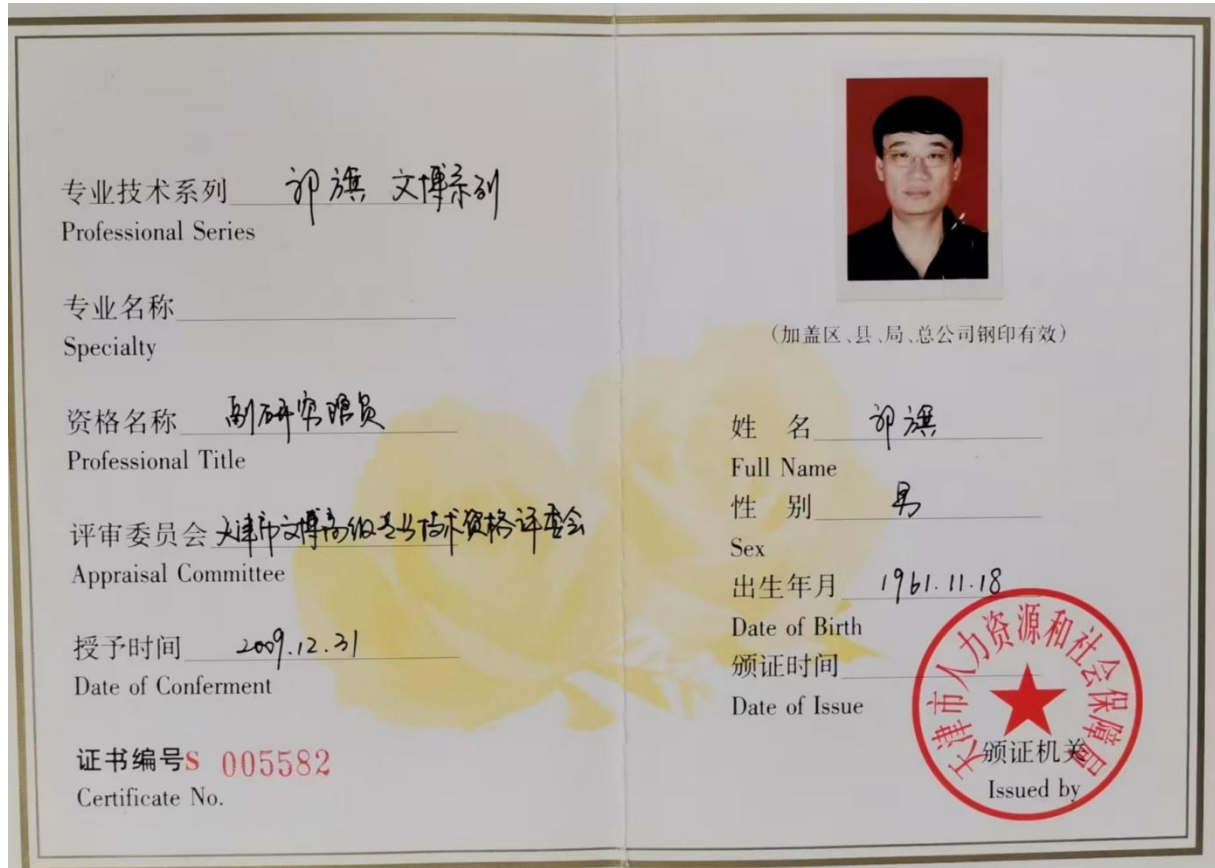 专业技术系列 祁旗 文博系列
Professional Series
专业名称
Specialty
资格名称 副研究馆员
Professional Title
评审委员会 天津市文博高级专业技术资格评委会
Appraisal Committee
授予时间 2009.12.31
Date of Conferment
证书编号S 005582
Certificate No.
(加盖区、县、局、总公司钢印有效)
姓 名 祁旗
Full Name
性 别 男
Sex
出生年月 1961.11.18
Date of Birth
颁证时间
Date of Issue
天津市人力资源和社会保障局
颁证机关
Issued by